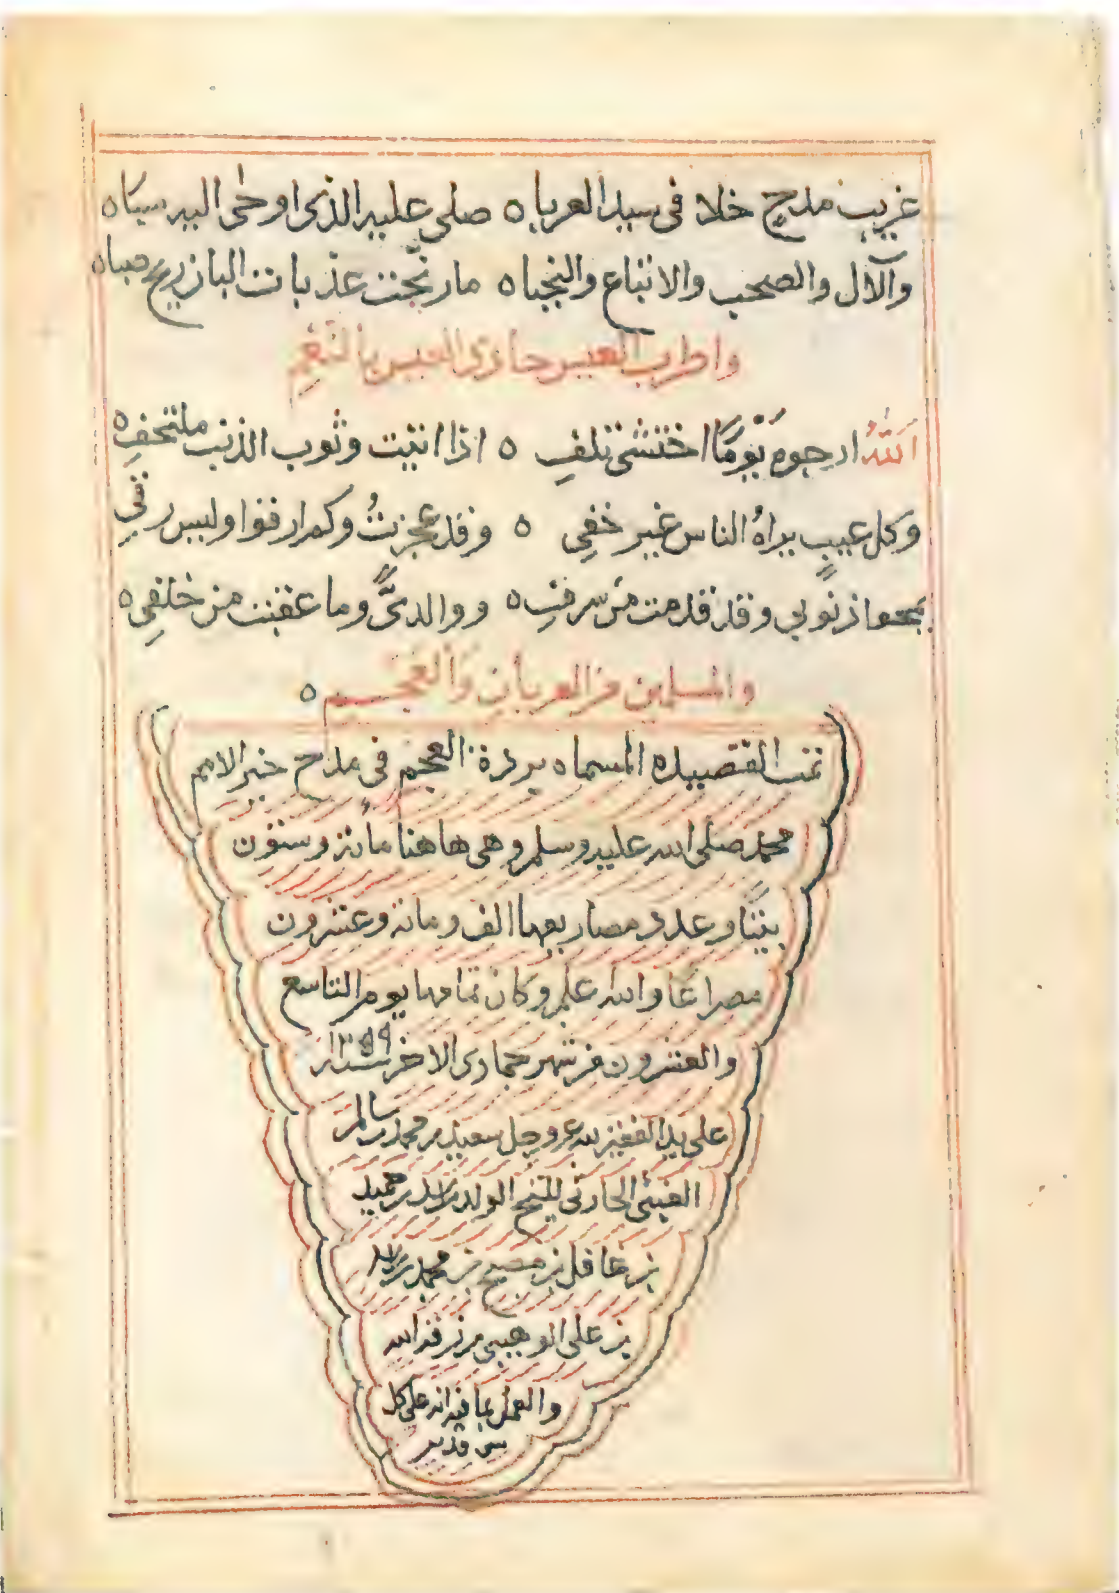 غريب مدح خلا في سيد العربا ٥ صلى عليه الذي اوحى اليه سبا ٥
والآل والصحب والاتباع والنجبا ٥ ما رنّحت عذبات البان ريح صبا ٥
واطرب العيس حادي العيس بالنغم
اللهُ ارجوه يَومًا اختشى تلفِ ٥ اذا اتيت وثوب الذنب ملتحفِ ٥
وكل عيبٍ يراهُ الناس غير خفِي ٥ وقد عجزتُ وكم ارقوا وليس رقِي
بمحو ذنوبي وقد قدمت من سرفِ ٥ ووالديَّ وما عقبت من خلفِي ٥
والمسلمين من العربانِ والعجمِ ٥
تمت القصيده المسماه بردة العجم في مدح خير الامم
محمد صلى الله عليه وسلم وهي هاهنا مائة وستون
بيتًا وعدد مصاريعها الف ومائة وعشرون
مصراعًا والله اعلم وكان تمامها يوم التاسع
والعشرون من شهر جمادى الاخر سنة ١٣٥٩
على يد الفقير لله عز وجل سعيد بن محمد بن سالم
الغيثي الحارثي للشيخ الولد بن حميد
بن غافل بن مصبح بن محمد بن
بن علي الوهيبي مرزقه الله
والعمل بما فيه انه على كل
شي قدير